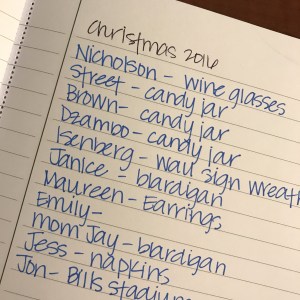 christmas 2016
Nicholson - wine glasses
Street - candy jar
Brown - candy jar
Dzambo - candy jar
Isenberg - wall sign wreath
Janice - blardigan
Maureen - Earrings
Emily -
mom Jay - blardigan
Jess - napkins
Jon - Bills stadium